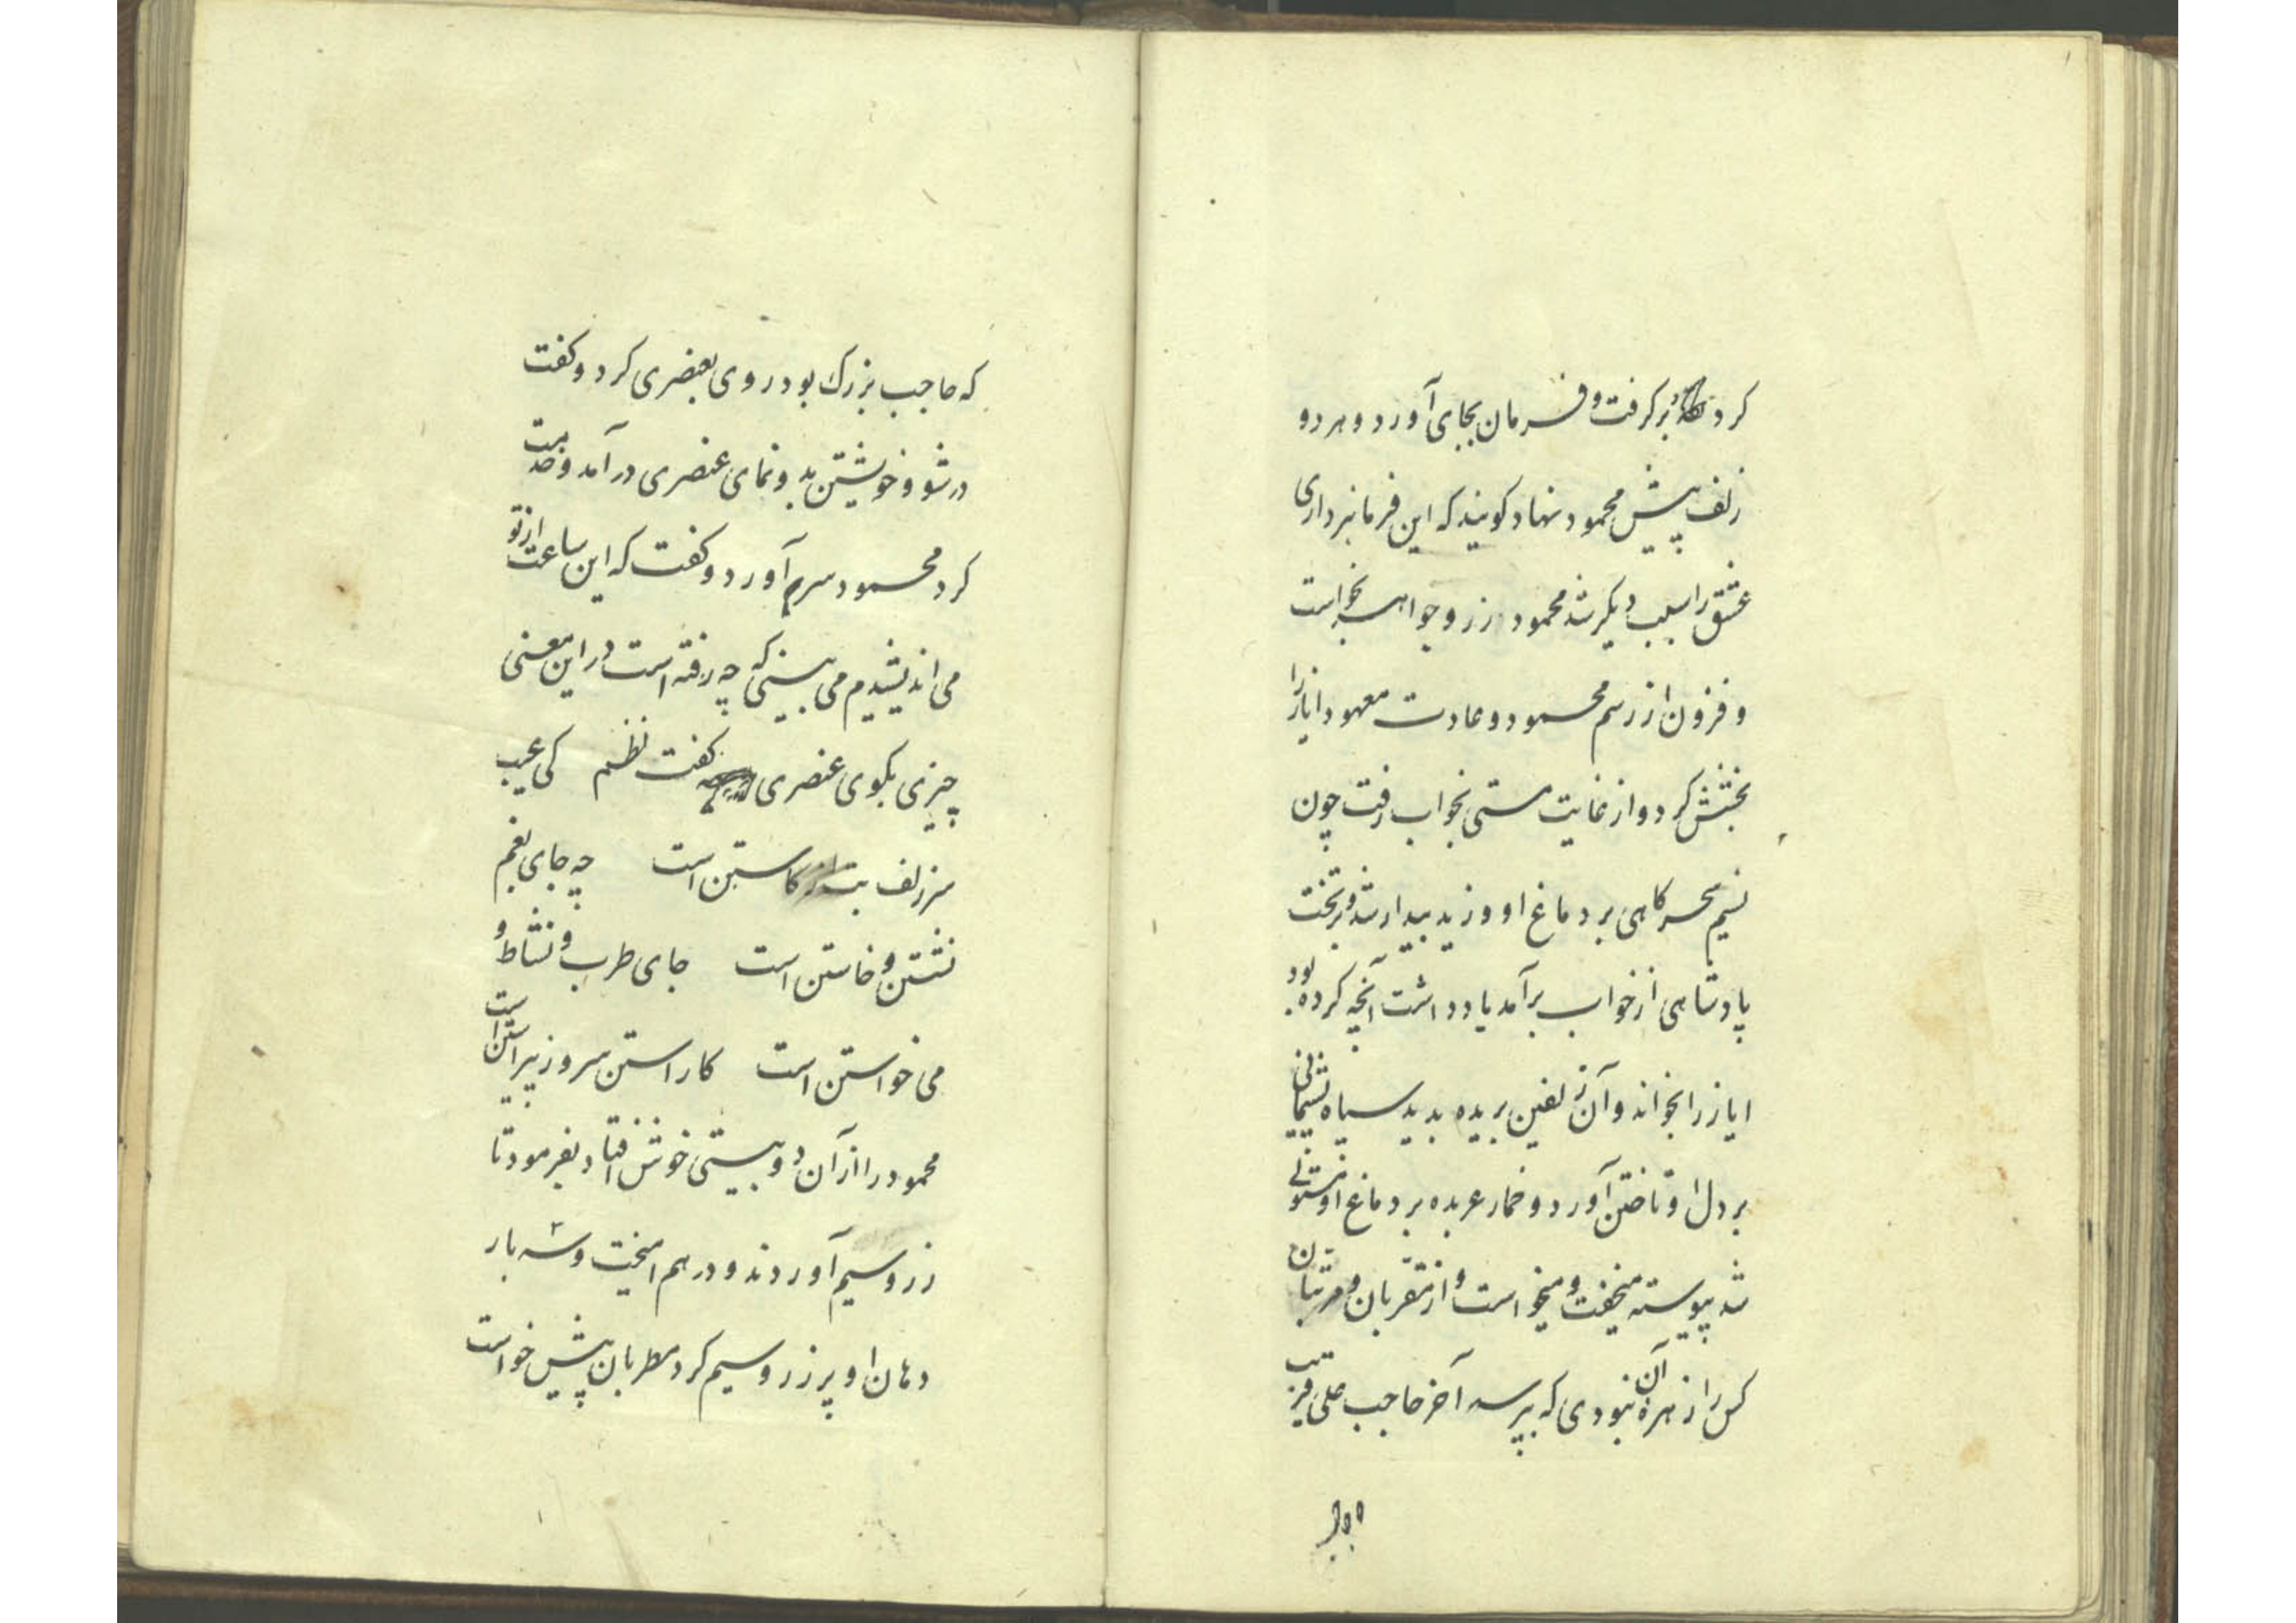 کرد برگرفت و فرمان بجای آورد و هر دو
زلف پیش محمود نهاد کویند که این فرمانبرداری
عشق را سبب دیگر شد محمود زر و جواهر بخواست
و فزون از رسم محمود و عادت معهود ایاز را
بخشش کرد و از غایت مستی بخواب رفت چون
نسیم سحرکاهی بر دماغ او وزید بیدار شد و بر تخت
پادشاهی از خواب برآمد یاد داشت آنچه کرده بود
ایاز را بخواند و آن زلفین بریده بدید سپاه پشیمانی
بر دل او تاختن آورد و خمار عربده بر دماغ او مستولی
شد پیوسته میخفت و میخواست و از مقربان و مرتبان
کس را زهرهٔ آن نبودی که بپرسد آخر حاجب علی قریب
که حاجب بزرک بود روی بعنصری کرد و کفت
در شو و خویشتن بدو نمای عنصری درآمد و خدمت
کرد محمود سر برآورد و کفت که این ساعت از تو
می اندیشیدم می بینی که چه رفته است در این معنی
چیزی بکوی عنصری کفت نظم کی عیب
سر زلف بت از کاستن است چه جای بغم
نشستن و خاستن است جای طرب و نشاط و
می خواستن است کاراستن سرو ز پیراستن است
محمود را از آن دو بیتی خوش افتاد بفرمود تا
زر و سیم آوردند و در هم امیخت و سه بار
دهان او پر زر و سیم کرد مطربان پیش خواست